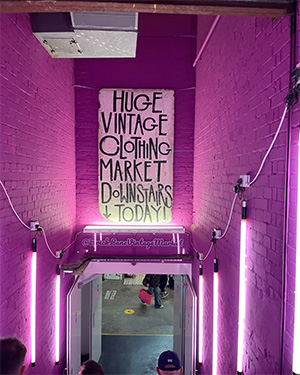 HUGE
VINTAGE
CLOTHING
MARKET
DOWNSTAIRS
↓ TODAY!
@BrickLaneVintageMarket